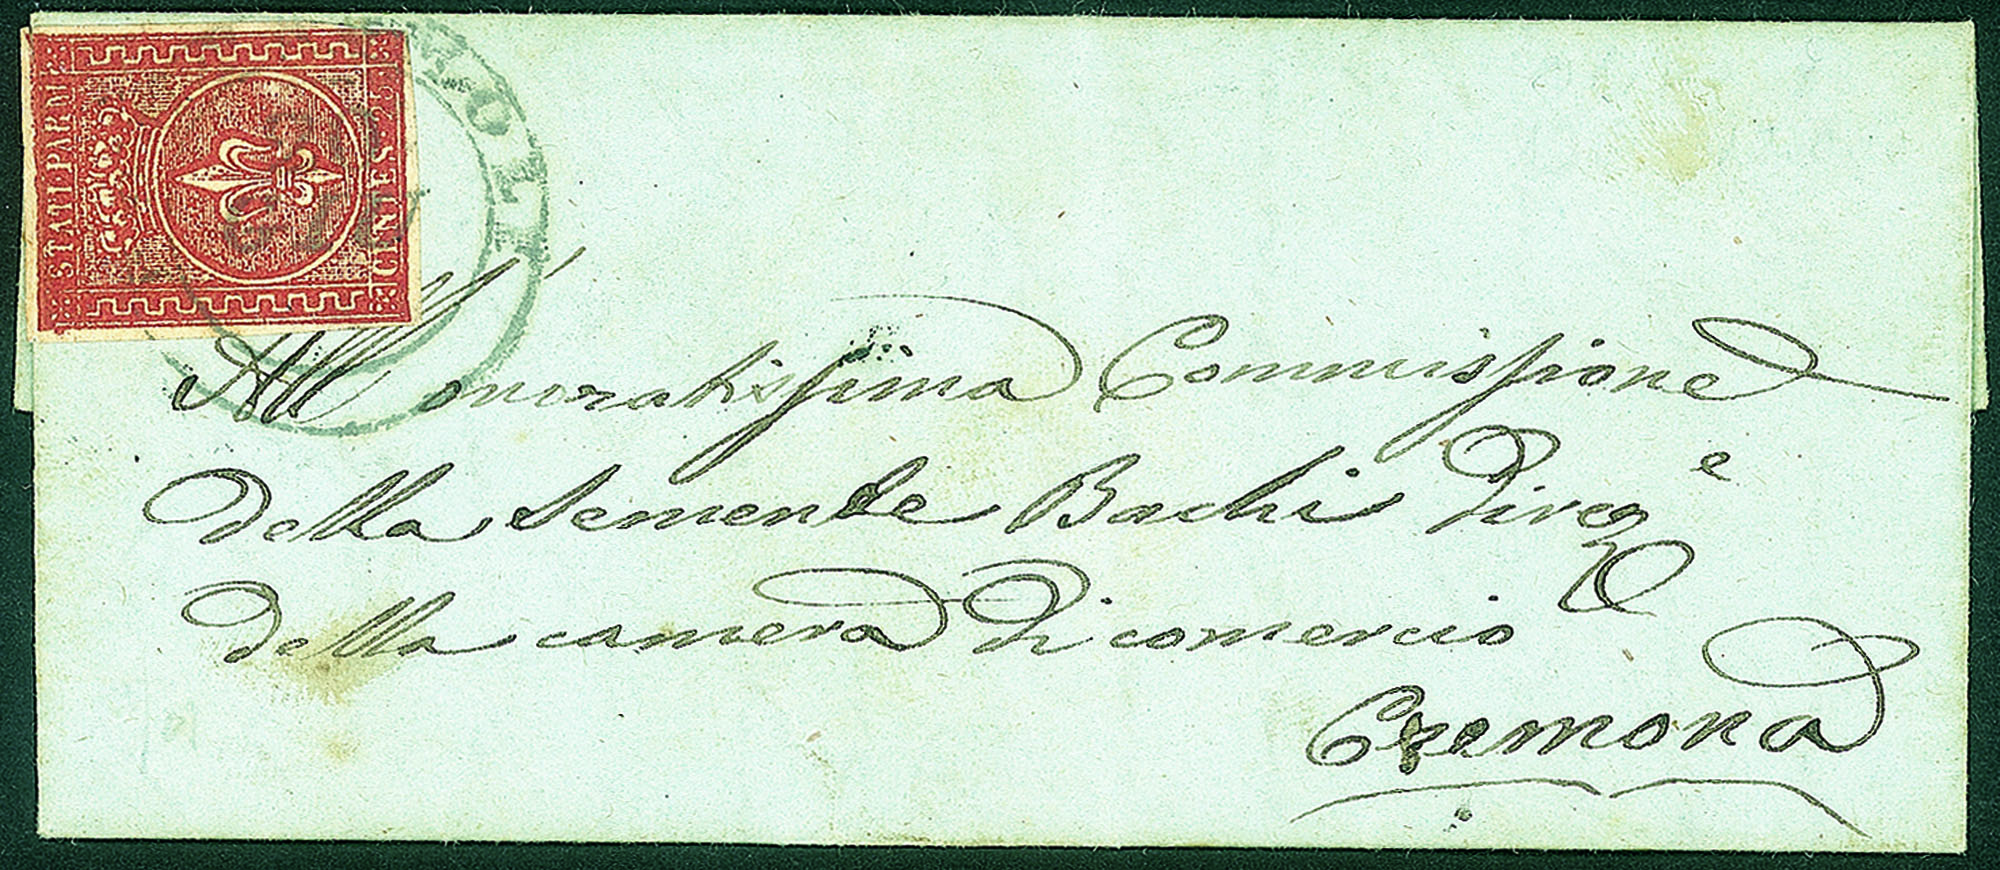 STATI PARM
CENTES. 25
All' onoratissima Commissione
della Semente Bachi direz<sup>e</sup>
della camera di comercio
Cremona